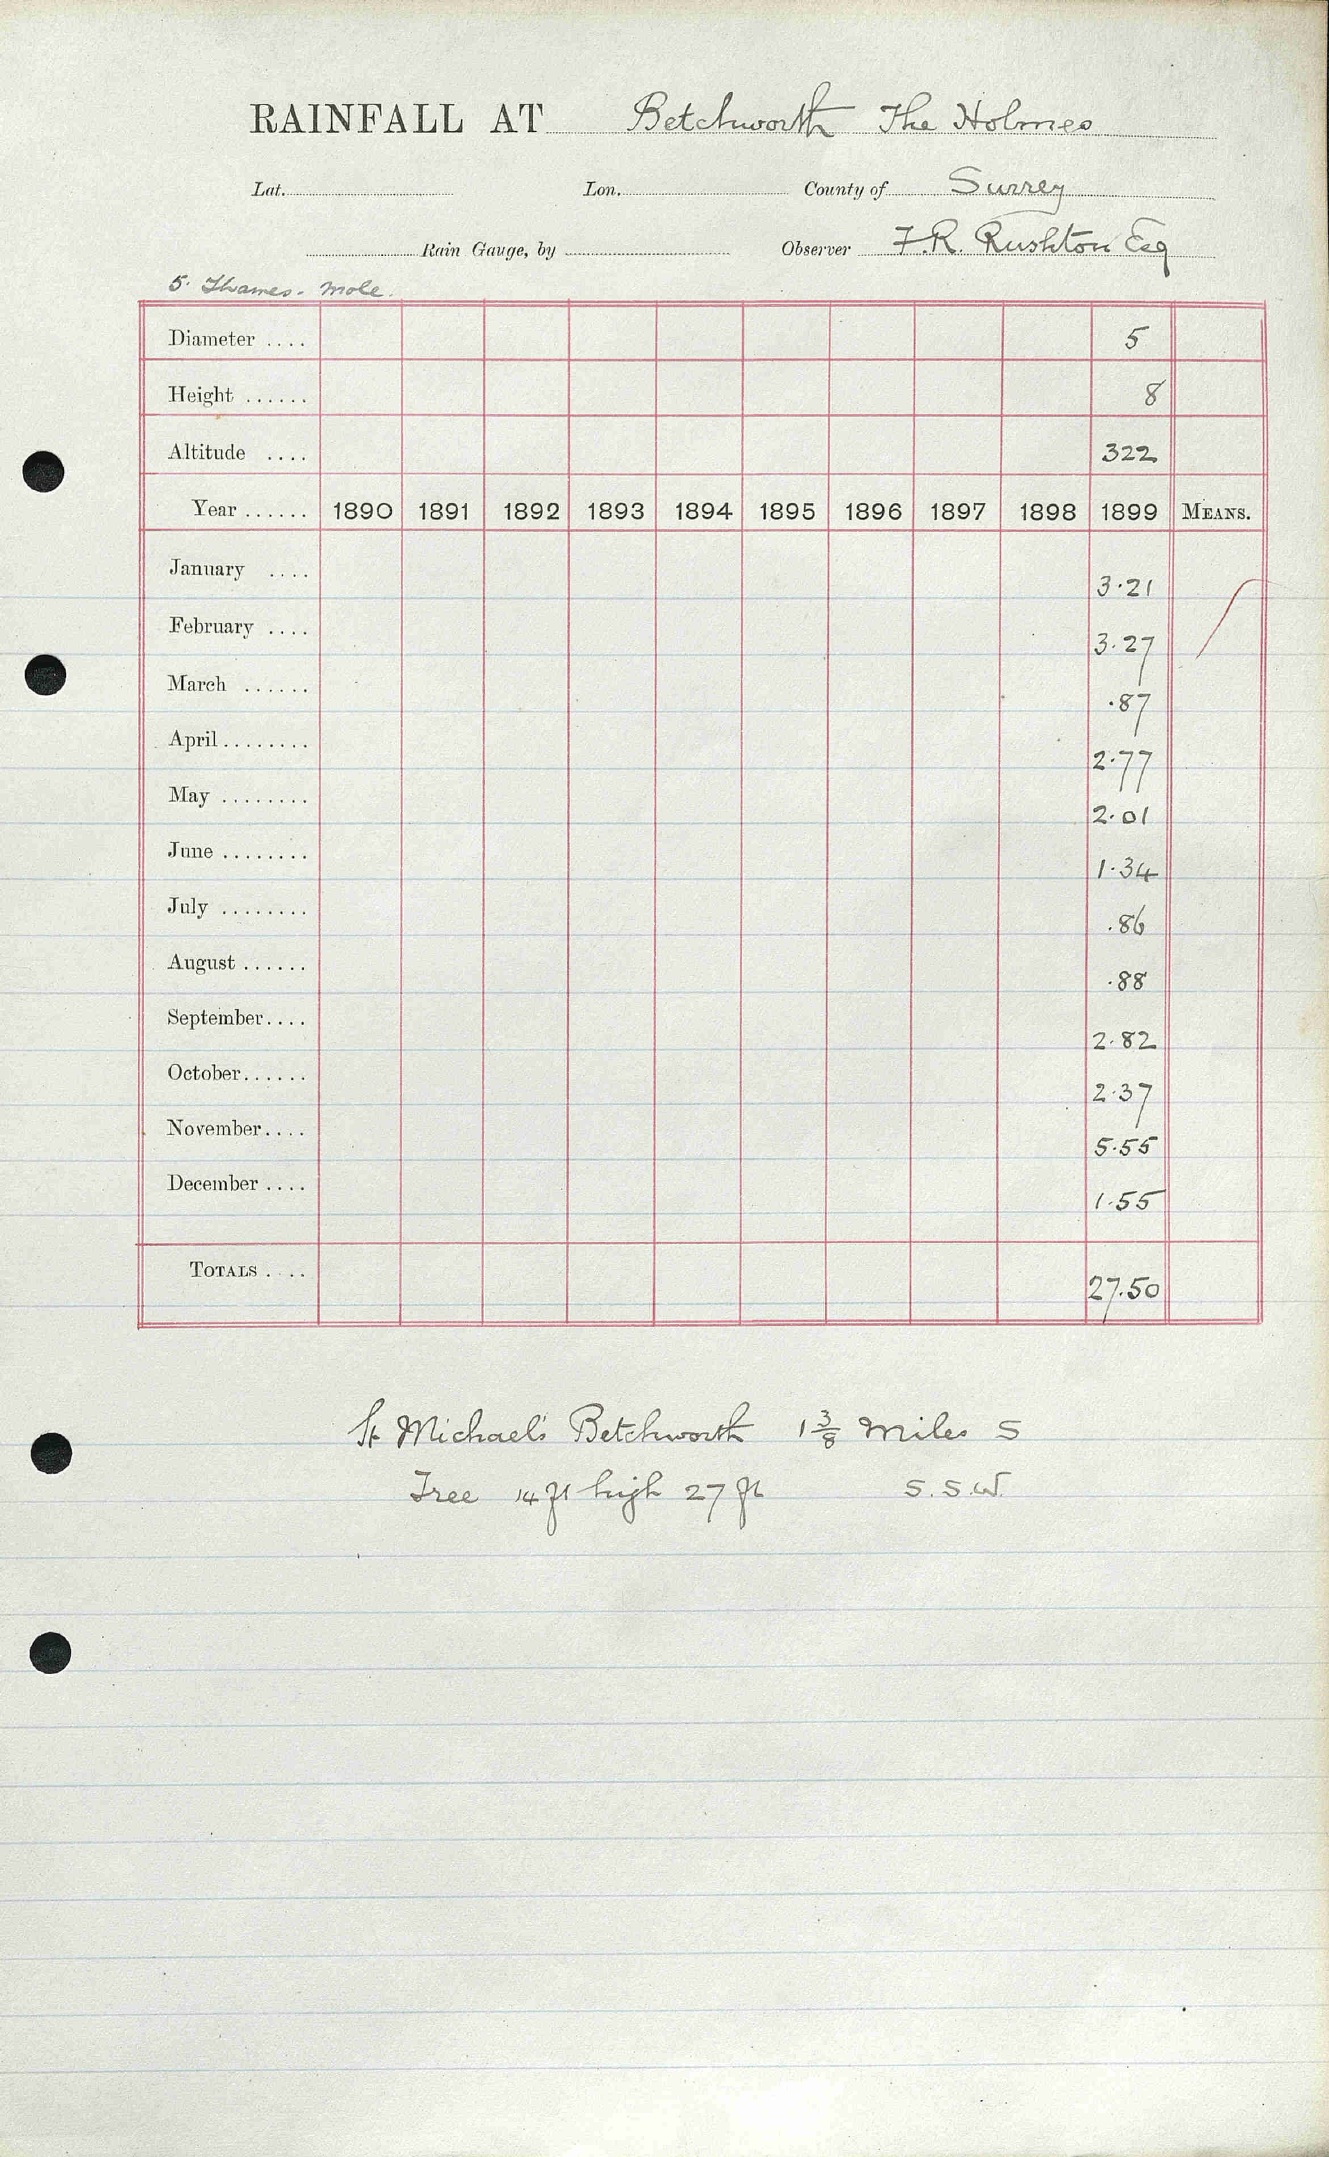 RAINFALL AT Betchworth The Holmes
Lat. Lon. County of Surrey
Rain Gauge, by Observer F.R. Rushton Esq
5. Thames - Mole.
Diameter .... 5
Height ...... 8
Altitude .... 322
Year ...... 1890 1891 1892 1893 1894 1895 1896 1897 1898 1899 MEANS.
January .... 3.21
February .... 3.27
March ...... .87
April ........ 2.77
May ........ 2.01
June ........ 1.34
July ........ .86
August ...... .88
September.... 2.82
October...... 2.37
November.... 5.55
December .... 1.55
TOTALS .... 27.50
St Michael's Betchworth 1 3/8 miles S
Tree 14 ft high 27 ft S.S.W.